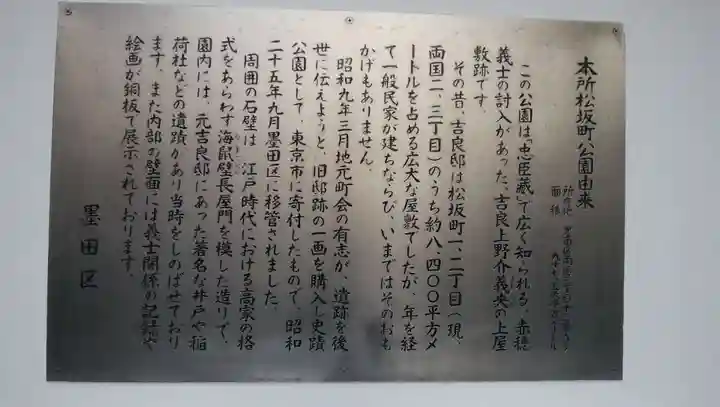 本所松坂町公園由来
所在地
面積
この公園は「忠臣蔵」で広く知られる、赤穂
義士の討入があった、吉良上野介義央の上屋
敷跡です。
その昔、吉良邸は松坂町一、二丁目(現、
両国二、三丁目)のうち約八、四〇〇平方メ
ートルを占める広大な屋敷でしたが、年を経
て一般民家が建ちならび、いまではそのおも
かげもありません。
昭和九年三月地元町会の有志が、遺跡を後
世に伝えようと、旧邸跡の一画を購入し史蹟
公園として、東京市に寄付したもので、昭和
二十五年九月墨田区に移管されました。
周囲の石壁は、江戸時代における高家の格
式をあらわす海鼠壁長屋門を模した造りで、
園内には、元吉良邸にあった著名な井戸や稲
荷社などの遺蹟があり当時をしのばせており
ます。また内部の壁面には義士関係の記録や
絵画が銅板で展示されております。
墨田区